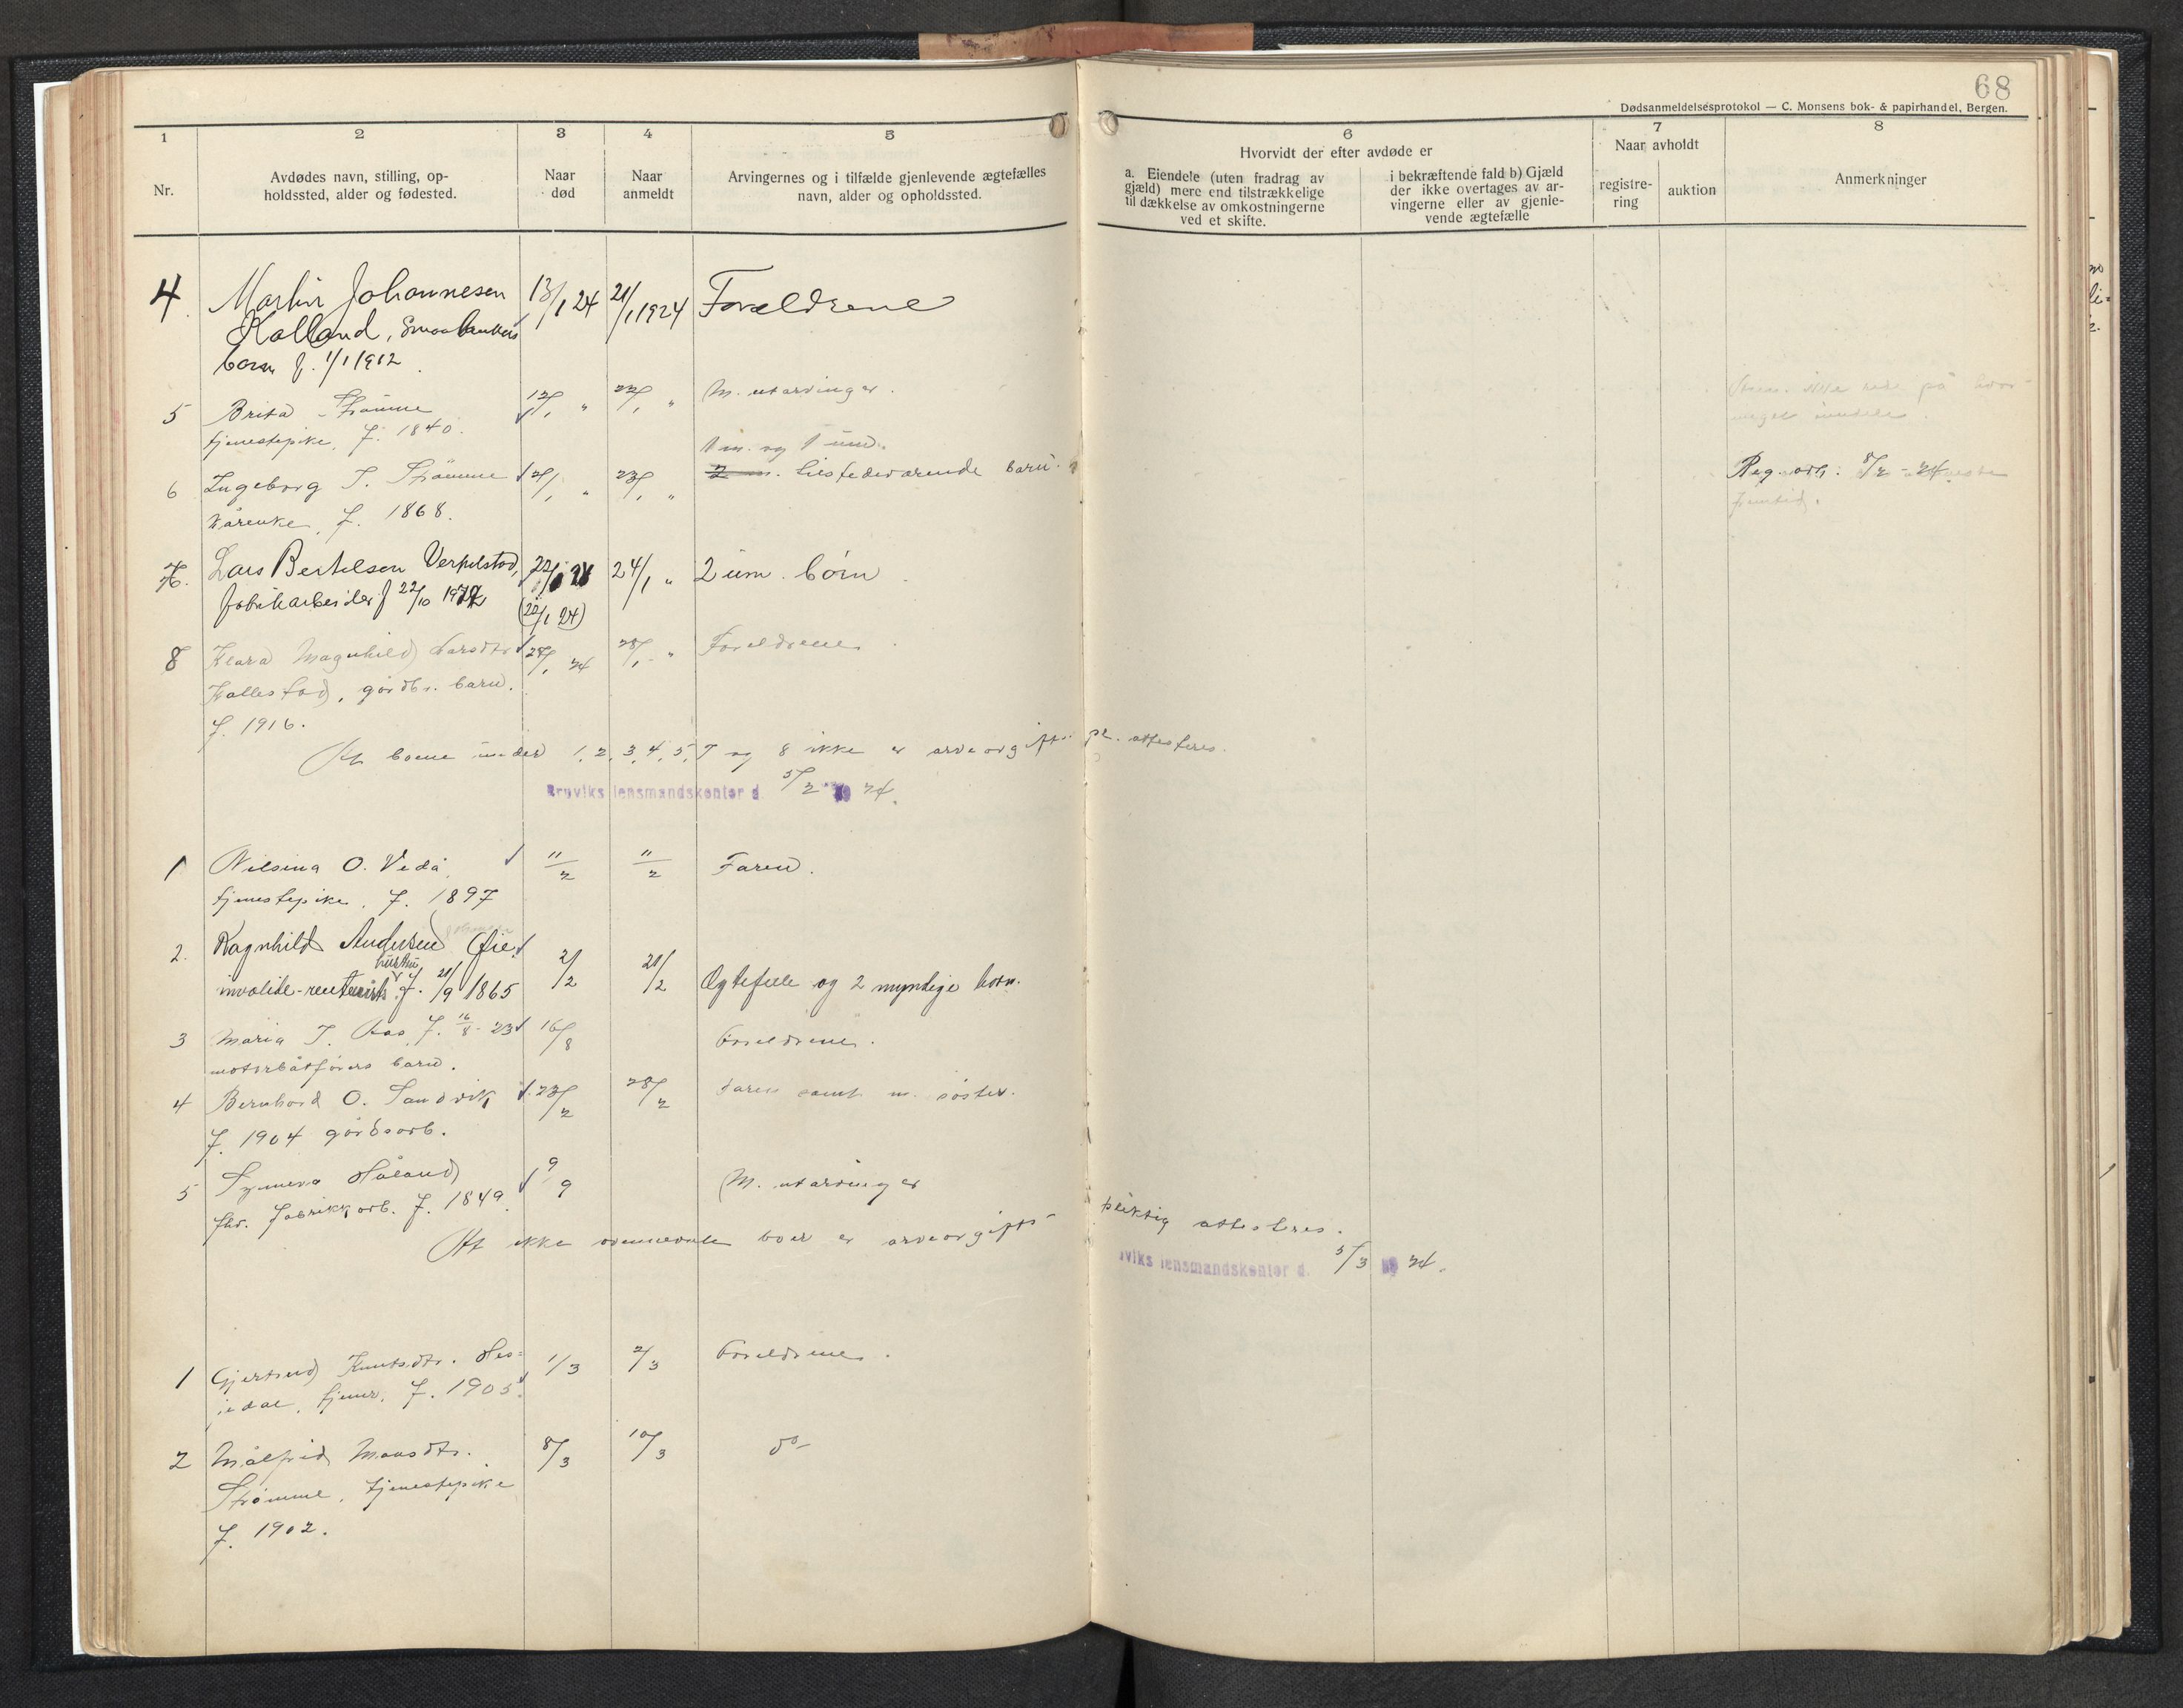 68
Dødsanmeldelsesprotokol — C. Monsens bok- & papirhandel, Bergen.
1 2 3 4 5 6 7 8
Nr.
Avdødes navn, stilling, op-
holdssted, alder og fødested.
Naar
død
Naar
anmeldt
Arvingernes og i tilfælde gjenlevende ægtefælles
navn, alder og opholdssted.
Hvorvidt der efter avdøde er
a. Eiendele (uten fradrag av
gjæld) mere end tilstrækkelige
til dækkelse av omkostningerne
ved et skifte.
i bekræftende fald b) Gjæld
der ikke overtages av ar-
vingerne eller av gjenle-
vende ægtefælle
Naar avholdt
registre-
ring
auktion
Anmerkninger
4. Martin Johannesen 13/1 24 21/1 1924 Forældrene
Kalland, Smaabrukers
barn f. 1/1 1912
5 Brita Strømme 12/1 " 22/1 " M. utarvinger.
tjenestepike, f. 1840.
1 m. og 1 um.
6 Ingeborg J. Strømme 21/1 " 23/1 " 2 m. livsfedervarende barn. Reg. avh. 8/2 - 24
kårenke, f. 1868.
7. Lars Bertelsen Verpelstad, 22/1 24 24/1 " 2 um. børn
fabrikarbeider f 22/10
(22/1 24)
8 Klara Magnhild Larsdtr 28/1 24 28/1 - " Foreldrene
Kallestad, gårdbr. barn.
f. 1916.
At boene under 1, 2, 3, 4, 5, 7 og 8 ikke er arveavgifts pl. attesteres.
Bruviks lensmandskontor d. 5/2 19 24.
1 Nilsina O. Veda, 11/2 11/2 Faren.
tjenestepike, f. 1897
2. Ragnhild Andersen Øie 2/2 21/2 Ægtefelle og 2 myndige barn.
hustru
invalide-rentenist f. 21/9 1865
3 Maria J. Aas f. 16/8 - 23 16/8 Foreldrene.
motorbåtførers barn.
4 Bernhard O. Sandvik 23/2 28/2 Faren samt m. søster.
f. 1904 gårdsarb.
5 Synneva Håland 9/9 M. utarvinger
fhv. fabrikkarb. f. 1849.
At ikke ovennevnte boer er arveavgifts- pliktig attesteres.
uviks lensmandskontor d. 5/3 19 24.
1 Gjertrud Knutsdtr. Hes= 1/3 2/3 Foreldrene.
jedal, tjener, f. 1905.
2 Målfrid Monsdtr. 8/3 10/3 do-
Strømme, tjenestepike
f. 1902.